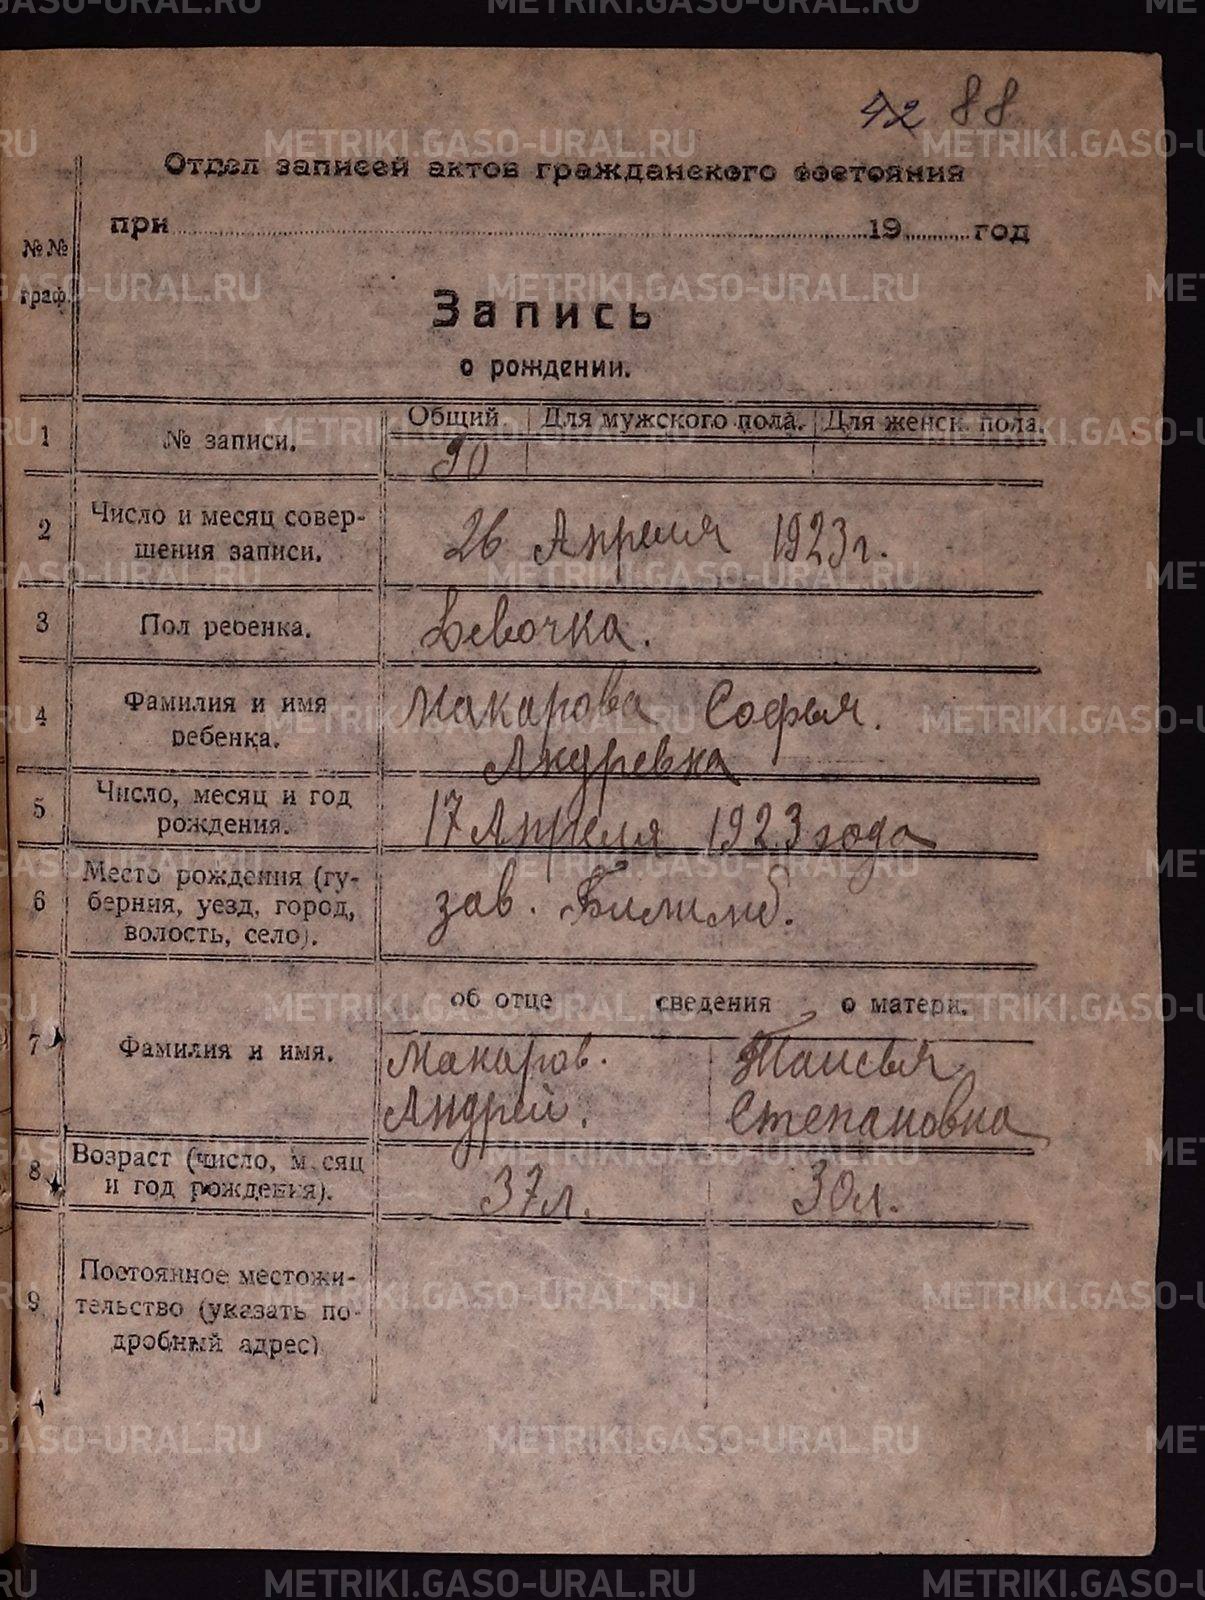 42 88
Отдел записей актов гражданского состояния
при 19 год
№№
граф.
Запись
о рождении.
1 № записи. Общий. Для мужского пола. Для женск. пола.
90
2 Число и месяц совер-
шения записи.
26 Апреля 1923 г.
3 Пол ребенка. Девочка.
4 Фамилия и имя
ребенка.
Макарова Софья.
Андревна
5 Число, месяц и год
рождения.
17 Апреля 1923 года
6 Место рождения (гу-
берния, уезд, город,
волость, село).
зав. Билимб.
об отце сведения о матери.
7 Фамилия и имя.
Макаров. Таисья
Андрей. Степановна
8 Возраст (число, месяц
и год рождения).
37 л. 30 л.
9 Постоянное местожи-
тельство (указать по-
дробный адрес)
METRIKI.GASO-URAL.RU